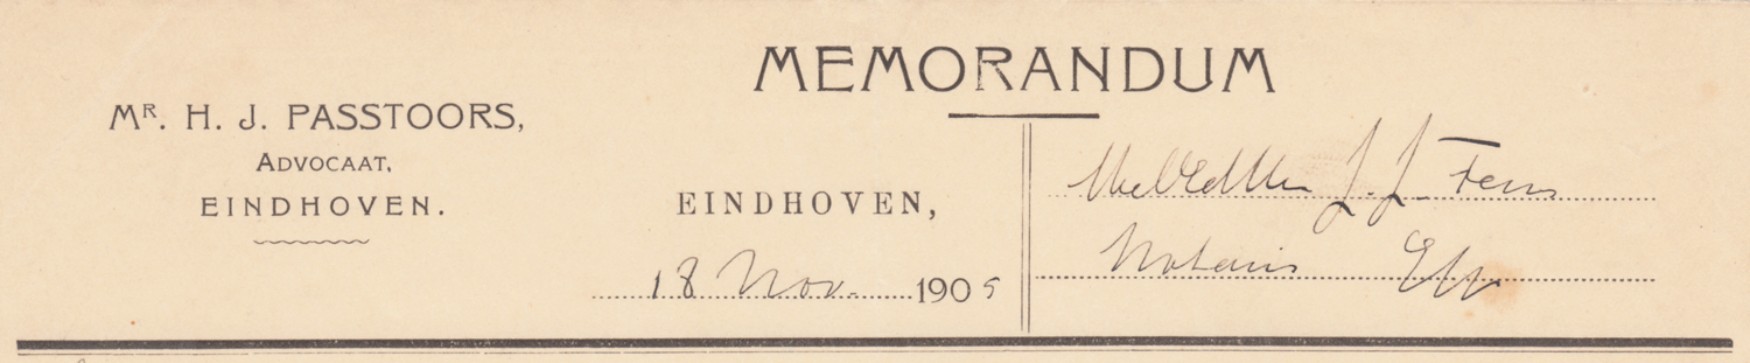 MEMORANDUM
MR. H. J. PASSTOORS,
ADVOCAAT,
EINDHOVEN.
EINDHOVEN,
18 Nov. 1905
J. J. Fens
Notaris